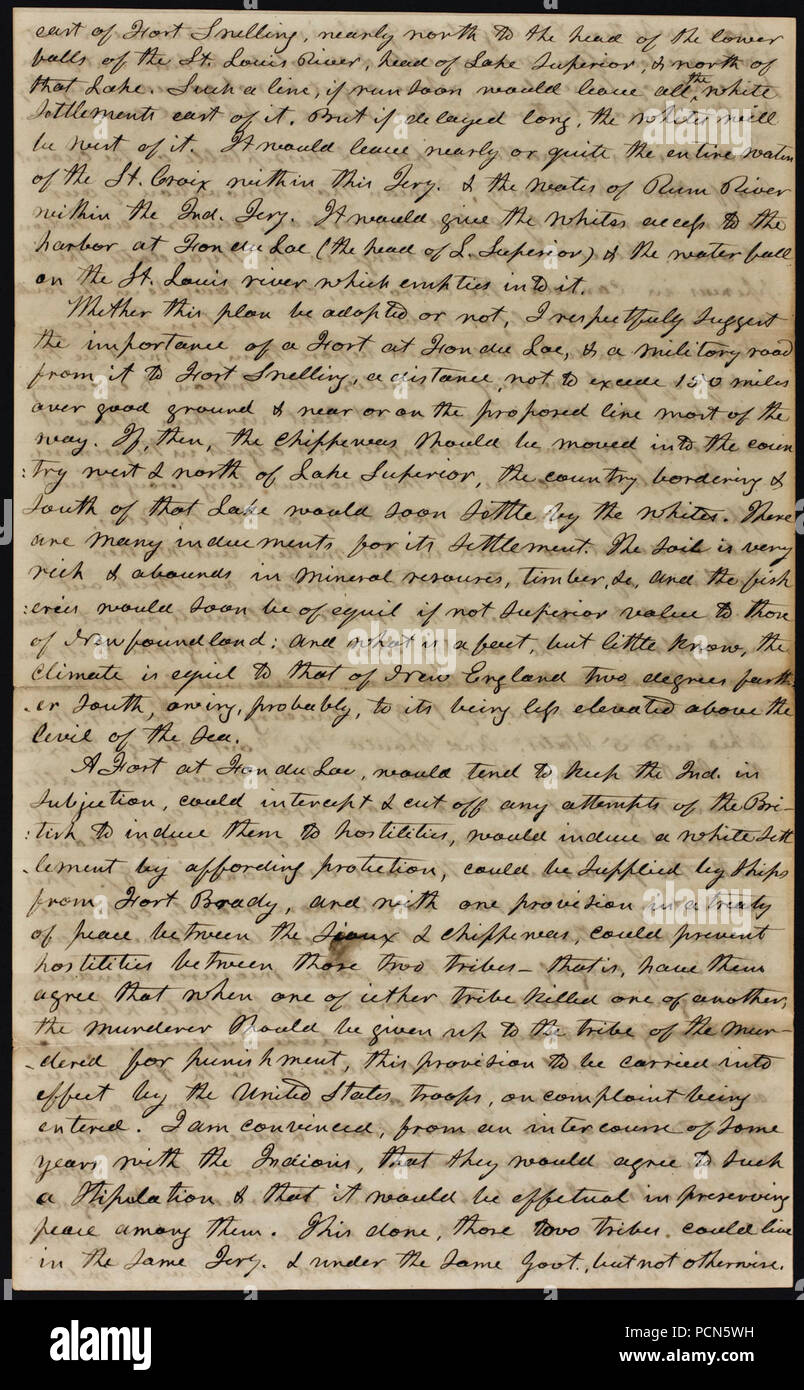 east of Fort Snelling, nearly north to the head of the lower
falls of the St. Louis River, head of Lake Superior, & north of
that Lake. Such a line, if run soon would leave all the white
settlements east of it. But if delayed long, the whites will
be west of it. It would leave nearly or quite the entire waters
of the St. Croix within this Tery. & the wates of Rum River
within the Ind. Tery. It would give the whites access to the
harbor at Fon du Lac (the head of L. Superior) & the water fall
on the St. Louis river which empties into it.
Whether this plan be adopted or not, I respectfuly suggest
the importance of a Fort at Fon du Lac, & a military road
from it to Fort Snelling, a distance, not to excede 150 miles
over good ground & near or on the proposed line most of the
way. If, then, the Chippewas should be moved into the coun
:try west & north of Lake Superior, the country bordering &
South of that Lake would soon settle by the whites. There
are many inducments for its settlement. The soil is very
rich & abounds in mineral resources, timber, &c, and the fish
:eries would soon be of equil if not superior value to those
of Newfoundland: and what is a fact, but little know, the
climate is equil to that of New England two degrees farth
-er South, owing, probably, to its being less elevated above the
level of the sea.
A Fort at Fon du Lac, would tend to keep the Ind. in
subjection, could intercept & cut off any attempts of the Bri-
:tish to induce them to hostilities, would induce a white Sett
-lement by affording protection, could be supplied by ships
from Fort Brady, and with one provision in a treaty
of peace between the Sioux & Chippewas, could prevent
hostilities between those two tribes - that is, have them
agree that when one of either tribe killed one of another,
the murderer should be given up to the tribe of the mur-
-dered for punishment, this provision to be carried into
effect by the United States troops, on complaint being
entered. I am convinced, from an intercourse of some
years with the Indians, that they would agree to such
a stipulation & that it would be effectual in preserving
peace among them. This done, those two tribes could live
in the same Tery. & under the same Govt., but not otherwise.
alamy
Image ID: PCN5WH
www.alamy.com